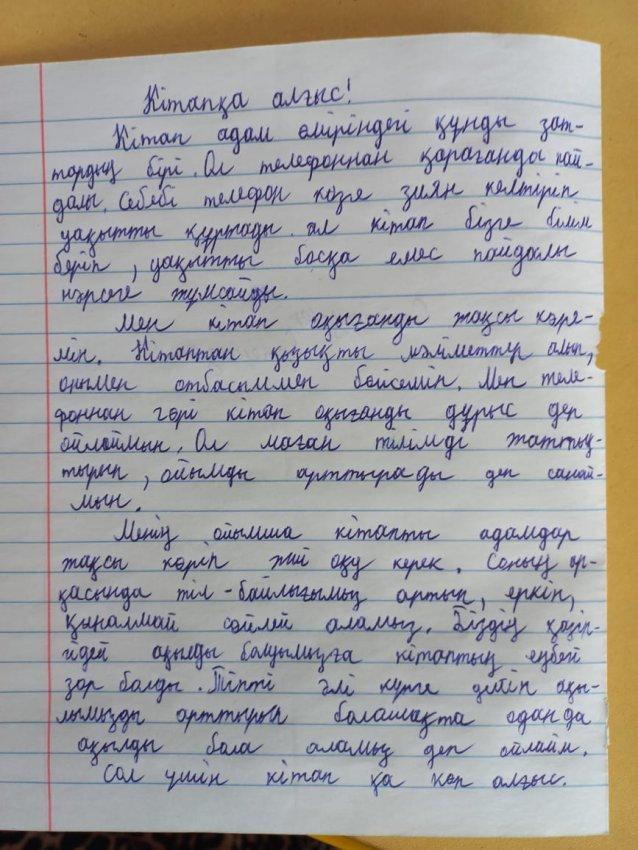 Кітапқа алғыс!
Кітап адам өміріндегі құнды зат-
тардың бірі. Ол телефоннан қарағанда пай-
далы. Себебі телефон көзге зиян келтіріп
уақытты құртады. ал кітап бізге білім
беріп, уақытты босқа емес пайдалы
нәрсеге жұмсайды.
Мен кітап оқығанды жақсы көре-
мін. Кітаптан қызықты мәліметтер алып,
онымен отбасыммен бөлсемін. Мен теле-
фоннан гөрі кітап оқығанды дұрыс деп
ойлаймын. Ол маған тілімді жаттық-
тырып, ойымды арттырады деп санай-
мын.
Менің ойымша кітапты адамдар
жақсы көріп жиі оқу керек. Соның ар-
қасында тіл-байлығымыз артып, еркін,
қиналмай сөйлей аламыз. Біздің қазір-
гідей ақылды болуымызға кітаптың еңбегі
зор болды. Тіпті әлі күнге дейін ақы-
лымызды арттырып болашақта одан да
ақылды бола аламыз деп ойлайм.
Сол үшін кітап қа көп алғыс.